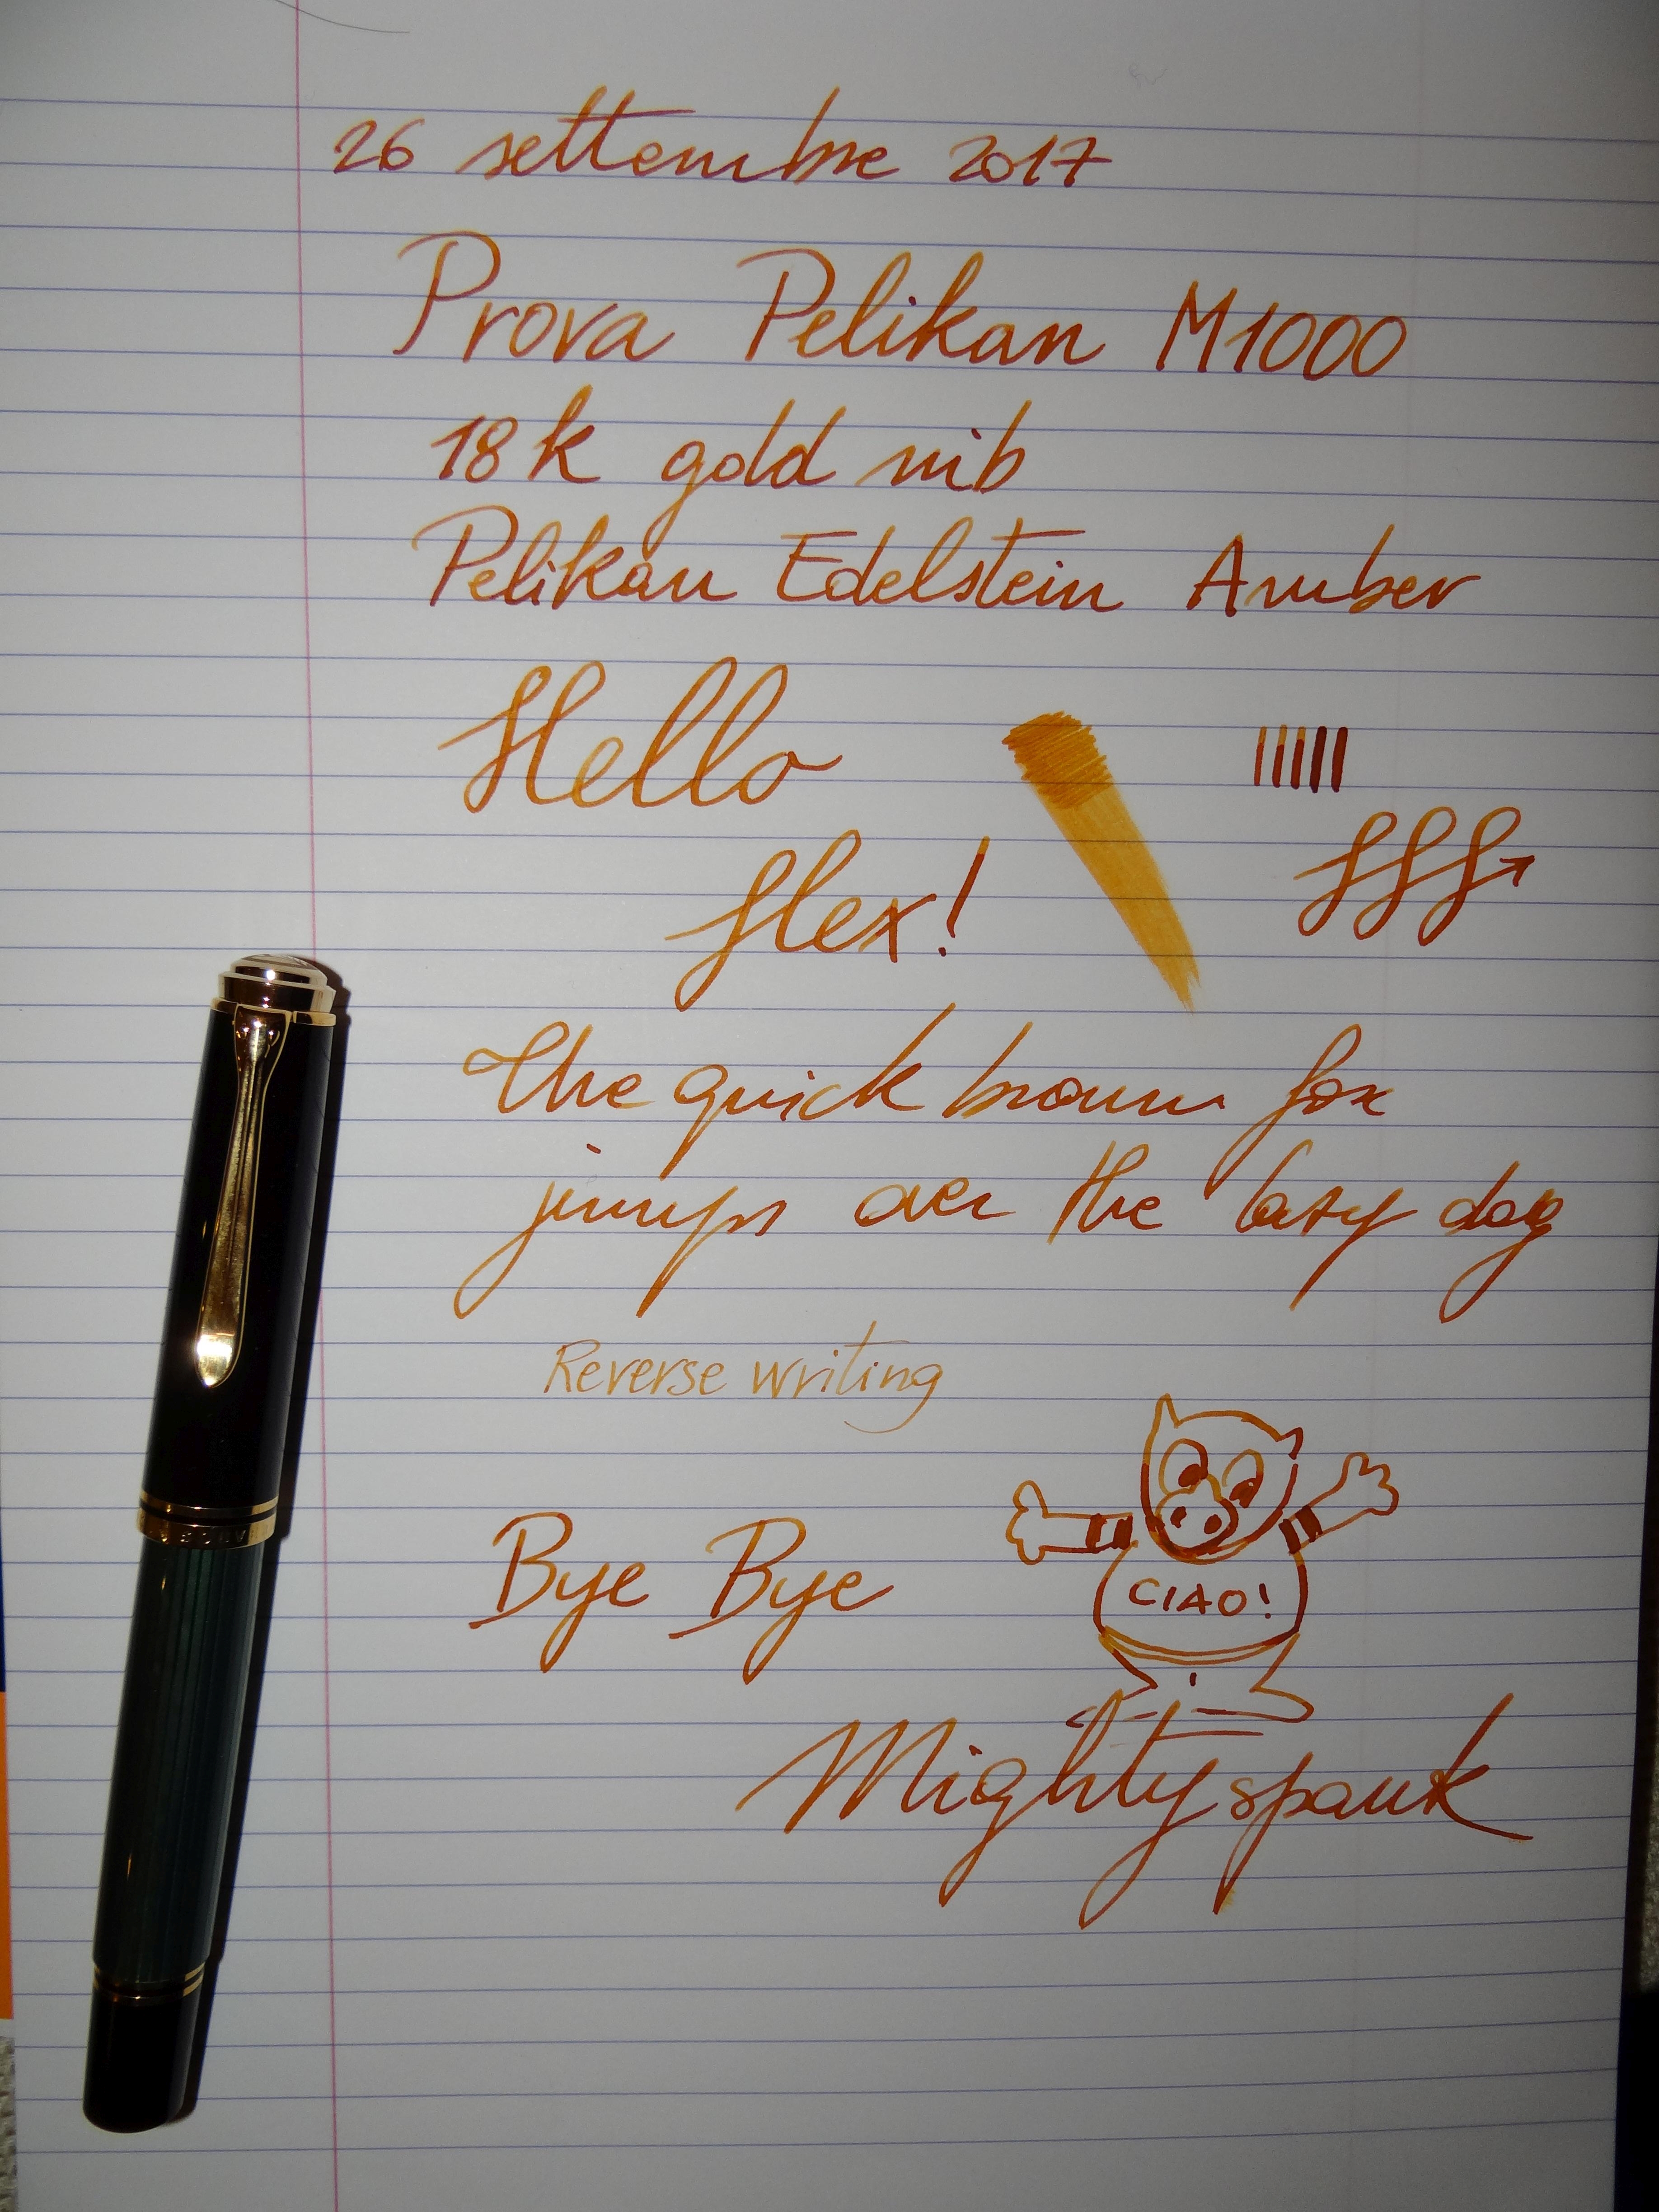 26 settembre 2017
Prova Pelikan M1000
18k gold nib
Pelikan Edelstein Amber
Hello
flex!
fff
The quick brown fox
jumps over the lazy dog
Reverse writing
Bye Bye
CIAO!
Mightyspank